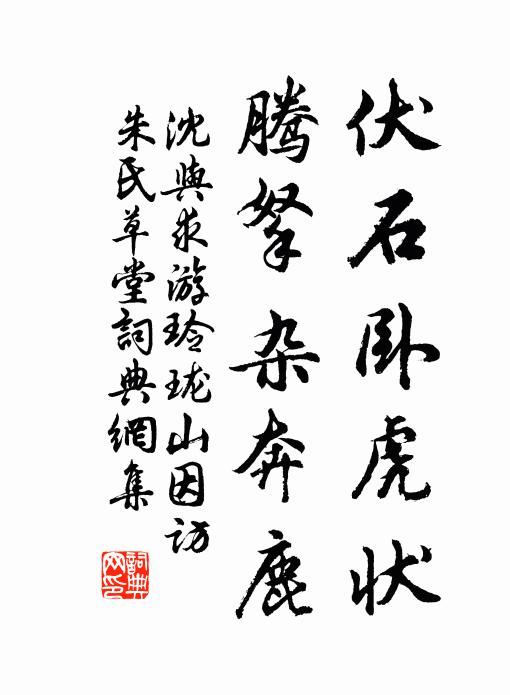 伏石卧虎状
腾拏杂奔鹿
沈與求游玲珑山因访
朱氏草堂詞典網集
詞典网印